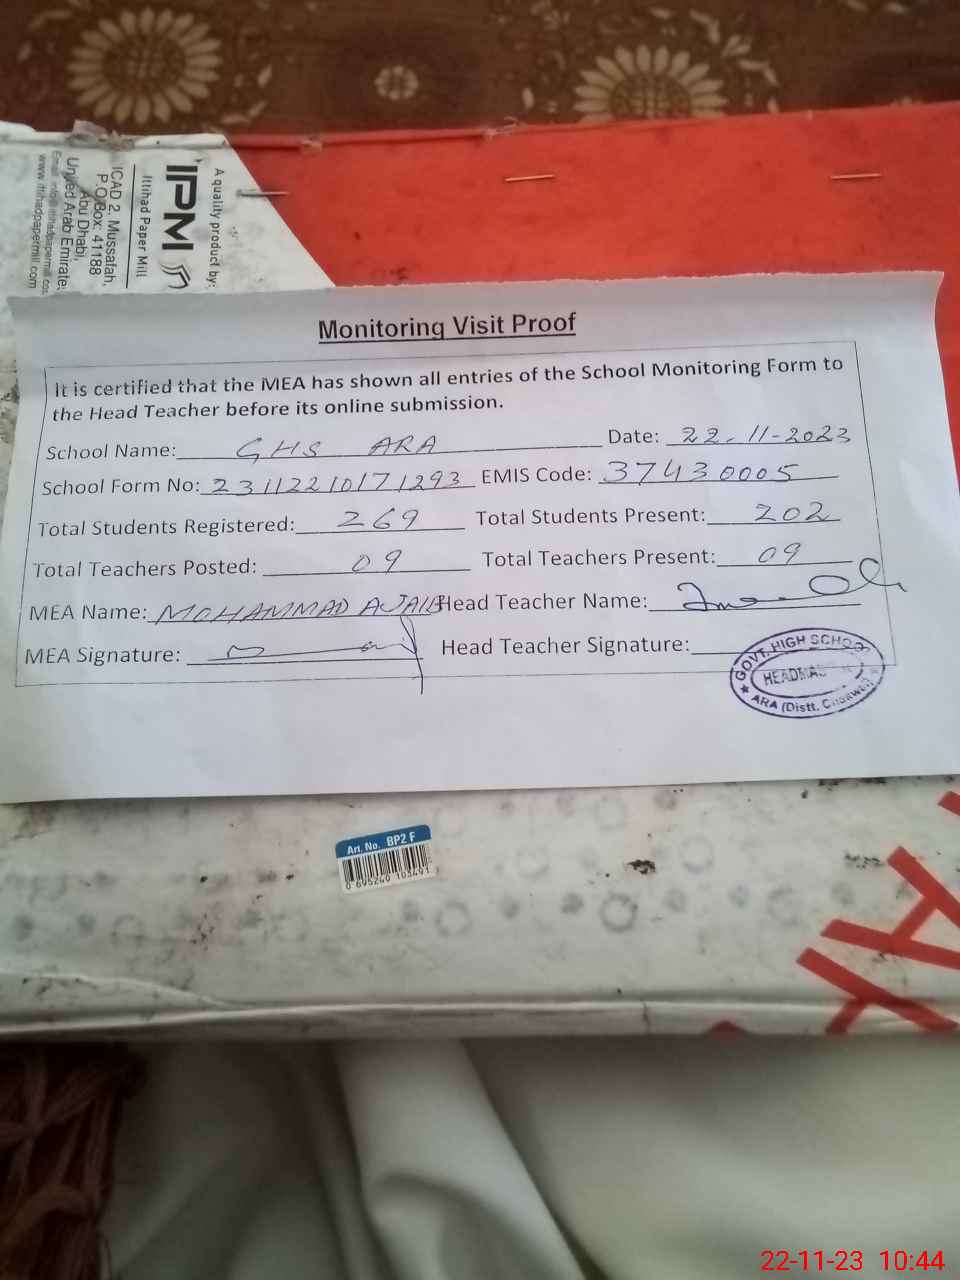 A quality product by:
IPM
Ittihad Paper Mill
ICAD 2, Mussafah,
P.O.Box: 41188
Abu Dhabi,
United Arab Emirate
www.ittihadpapermill.com
Monitoring Visit Proof
It is certified that the MEA has shown all entries of the School Monitoring Form to
the Head Teacher before its online submission.
School Name: GHS ARA Date: 22-11-2023
School Form No: 23112210171293 EMIS Code: 37430005
Total Students Registered: 269 Total Students Present: 202
Total Teachers Posted: 09 Total Teachers Present: 09
MEA Name: MOHAMMAD AJAIB Head Teacher Name:
MEA Signature: Head Teacher Signature:
GOVT. HIGH SCHOOL
ARA (Distt.
Art. No. BP2 F
0 695240 103491
22-11-23 10:44